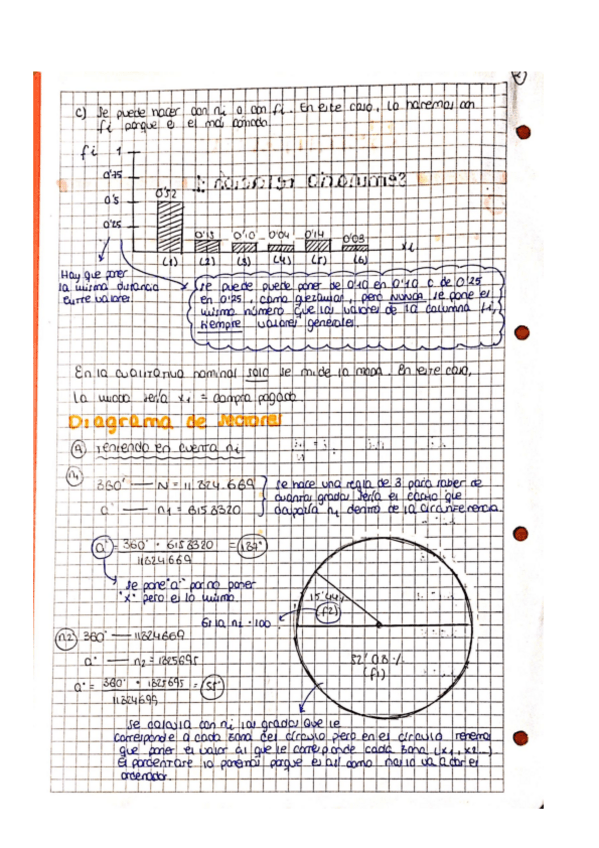 c) Se puede hacer con ni o con fi. En este caso, lo haremos con
fi porque es el más cómodo.
fi 1
0'75
0'5
0'25
0'52
0'15 0'10 0'04 0'14 0'03
(1) (2) (3) (4) (5) (6)
xi
Hay que poner
la misma distancia
entre valores.
Se puede puede poner de 0'10 en 0'10 o de 0'25
en 0'25, como queramos, pero NUNCA se pone el
mismo número que los valores de la columna fi,
siempre valores generales.
En la cualitativa nominal solo se mide la moda. En este caso,
la moda sería x1 = compra pagada.
Diagrama de sectores
a) teniendo en cuenta ni
n1
360° — N = 11.824.669
a° — n1 = 6158320
se hace una regla de 3 para saber de
cuantos grados sería el cacho que
ocuparía n1 dentro de la circunferencia.
a° = 360° · 6158320 = 187°
11824669
se pone "a" por no poner
"x" pero es lo mismo.
n2 360° — 11824669
a° — n2 = 1825695
a° = 360° · 1825695 = 55°
11824699
· 100
15'44%
(f2)
52'08%
(f1)
Se calcula con ni los grados que le
corresponde a cada zona del círculo pero en el círculo tenemos
que poner el valor al que le corresponde cada zona (x1, x2...)
El porcentaje lo ponemos porque es así como nos lo va a dar el
ordenador.